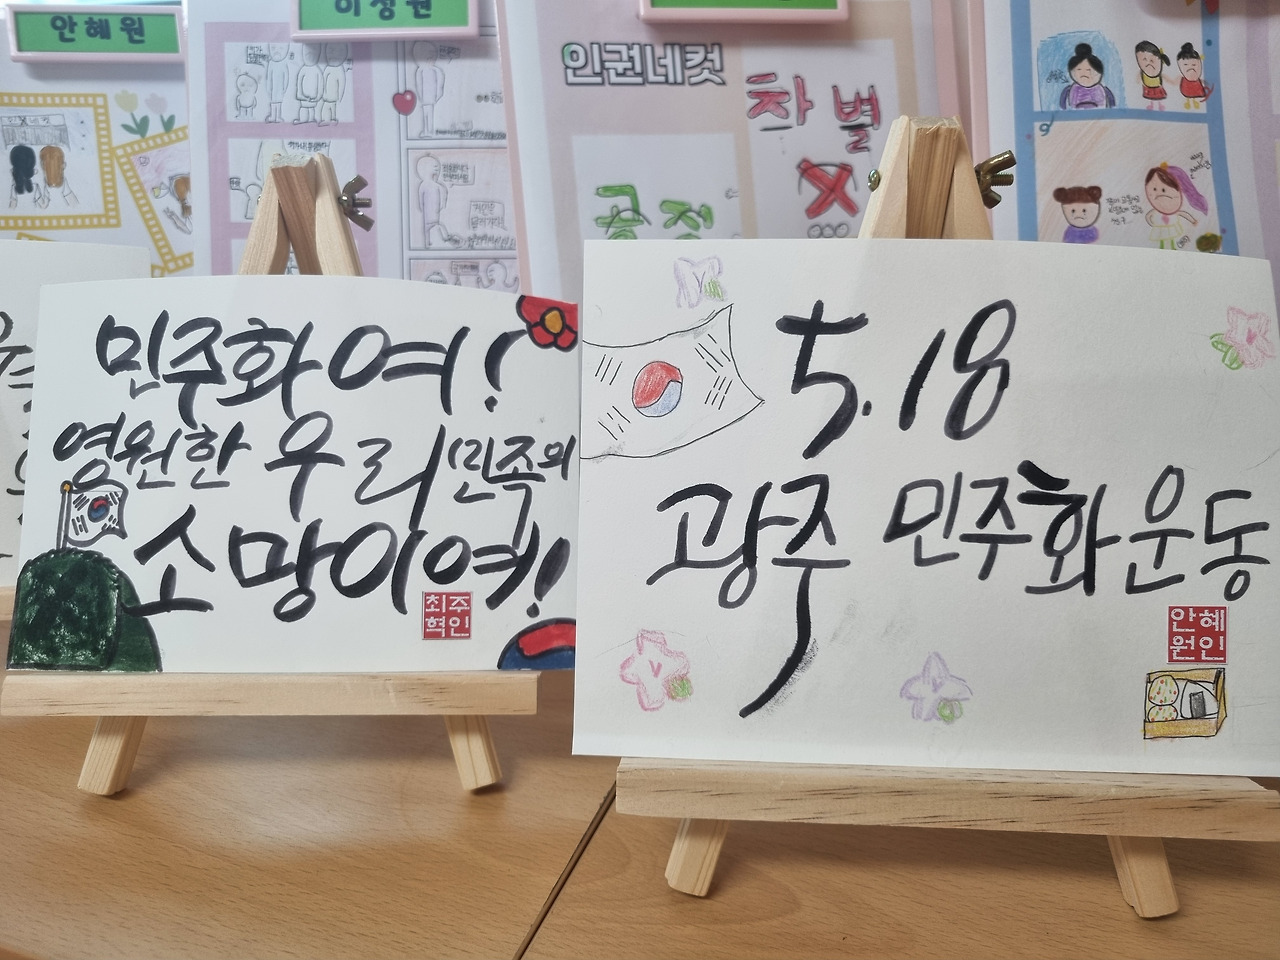 안혜원
이정원
인권네컷
차별
공정
민주화여!
영원한 우리 민족의
소망이여!
최주
혁인
5.18
광주 민주화운동
안혜
원인